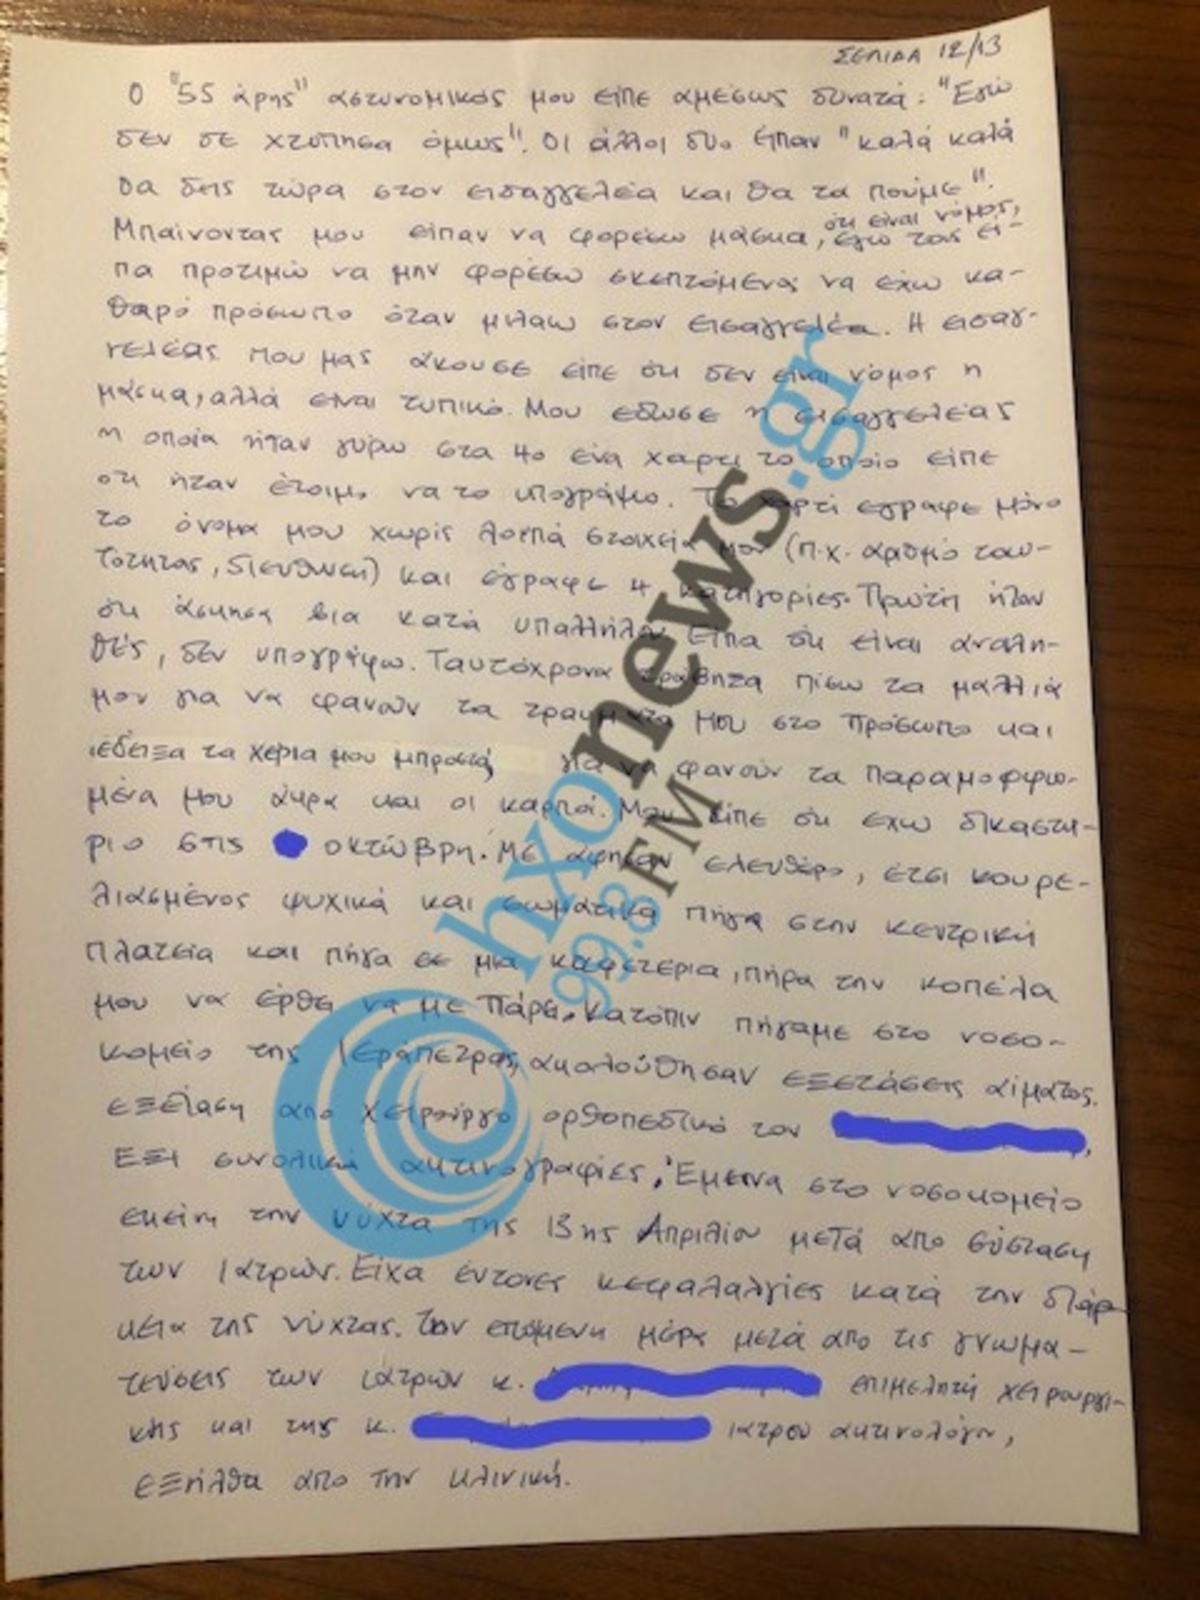 ΣΕΛΙΔΑ 12/13
Ο "55 άρης" αστυνομικός μου είπε αμέσως δυνατά: "Εγώ
δεν σε χτύπησα όμως". Οι άλλοι δυο είπαν "καλά καλά
θα δεις τώρα στον εισαγγελέα και θα τα πούμε".
ότι είναι νόμος,
Μπαίνοντας μου είπαν να φορέσω μάσκα, εγώ τους εί-
πα προτιμώ να μην φορέσω σκεπτόμενος να έχω κα-
θαρό πρόσωπο όταν μιλάω στον εισαγγελέα. Η εισαγ-
γελέας που μας άκουσε είπε ότι δεν είναι νόμος η
μάσκα, αλλά είναι τυπικό. Μου έδωσε η εισαγγελέας
η οποία ήταν γύρω στα 40 ένα χαρτί το οποίο είπε
ότι ήταν έτοιμο να το υπογράψω. Το χαρτί έγραφε μόνο
το όνομα μου χωρίς λοιπά στοιχεία μου (π.χ. αριθμό ταυ-
τότητας, διεύθυνση) και έγραφε 4 κατηγορίες. Πρώτη ήταν
ότι άσκησα βια κατά υπαλλήλου. Είπα ότι είναι αναλη-
θές, δεν υπογράφω. Ταυτόχρονα τράβηξα πίσω τα μαλλιά
μου για να φανούν τα τραύματα μου στο πρόσωπο και
έδειξα τα χέρια μου μπροστά για να φανούν τα παραμορφω-
μένα μου άκρα και οι καρποί. Μου είπε ότι έχω δικαστή-
ριο στις οκτώβρη. Με άφησαν ελεύθερο, έτσι κουρε-
λιασμένος ψυχικά και σωματικά πήγα στην κεντρική
πλατεία και πήγα σε μια καφετέρια, πήρα την κοπέλα
μου να έρθει να με πάρει. Κατόπιν πήγαμε στο νοσο-
κομείο της Ιεράπετρας, ακολούθησαν εξετάσεις αίματος,
εξέταση απο χειρούργο ορθοπεδικό τον ,
έξι συνολικά ακτινογραφίες. Έμεινα στο νοσοκομείο
εκείνη την νύχτα της 13ης Απριλίου μετά απο σύσταση
των Ιατρών. Είχα έντονες κεφαλαλγίες κατά την διάρ
κεια της νύχτας. Την επόμενη μέρα μετά απο τις γνωμα-
τεύσεις των ιατρών κ. επιμελητή χειρουργι-
κής και της κ. ιατρού ακτινολόγου,
εξήλθα απο την κλινική.
ηχοnews.gr
99.8 FM